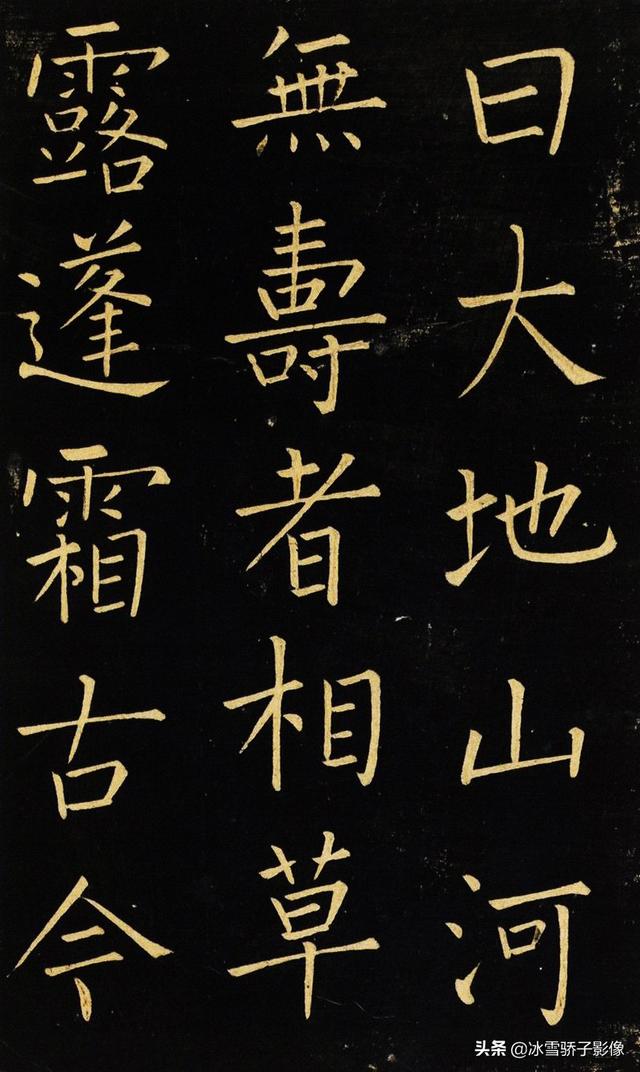 曰大地山河
無壽者相草
露蓬霜古今
头条 @冰雪骄子影像